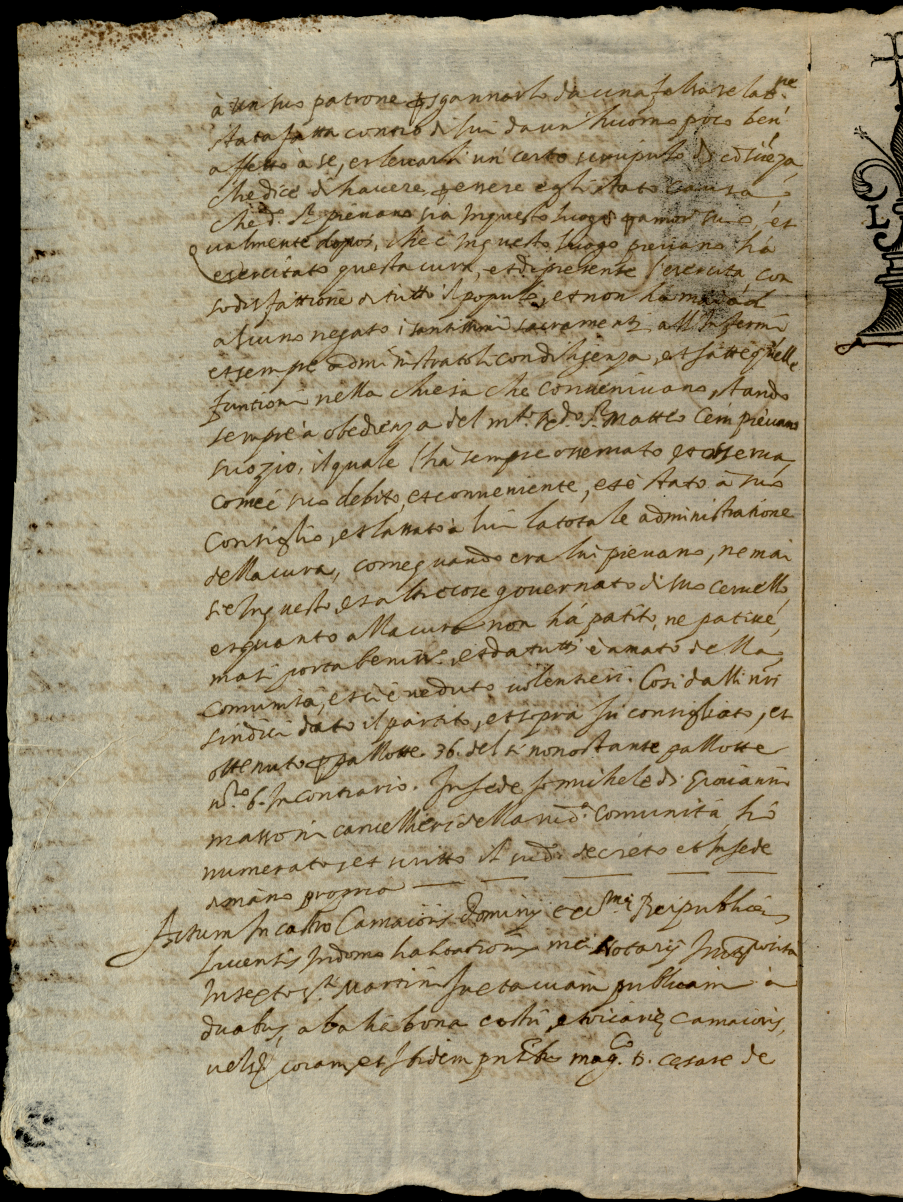 à un suo patrone p sgannarlo da una falsa relaone
stata fatta contro di lui da un' huomo poco ben'
affetto à se, et levarli un' certo scrupulo di
che dice di havere, p essere egli stato causa
che do. Sr. pievano sia in questo luogo p amor suo, et
ualmente dopoi, che è in questo luogo pievano ha
esercitato questa cura, et di presente l'esercita con
sodisfattione di tutto il popolo, et non ha mai ad
alcuno negato i santissimi sacramenti all' Infermi
et sempre administratoli con diligenza, et fatte quelle
funtioni nella chiesa che convenivano, stando
sempre à obedienza del mto. Rdo. Sr. Matteo Cem pievano
suo zio, il quale l'hà sempre osservato et osserva
come è suo debito, et conveniente, et è stato à suo
consiglio, et lassato à lui la totale administratione
della cura, come quando era lui pievano, ne mai
si è in questo, et altre cose governato di suo cervello
et quanto alla cura non hà patito, ne patisce,
masi porta benisso. et da tutti è amato della
comunità, et ci è veduto volentieri. Così dalli nri
sindici dato il partito, et sopra fu consigliato, et
ottenuto p pallotte 36. del si nonostante pallotte
no. 6. In contrario. In fede Io michele di Giovanni
massoni cancelliere della sudᵃ. Comunità hò
numerato, et scritto il sudo. decreto et In fede
di mano propria
Actum In castro Camaioris Dominij eccmae Reipublicae
Lucensis In domo habitationis mei Notarij Infrascritti
In sexto Sti. Martini Iuxta viam publicam à
duabus, ab alio bona et vicariae Camaioris,
coram, et Ibidem pntibus mago. D. Cesare de